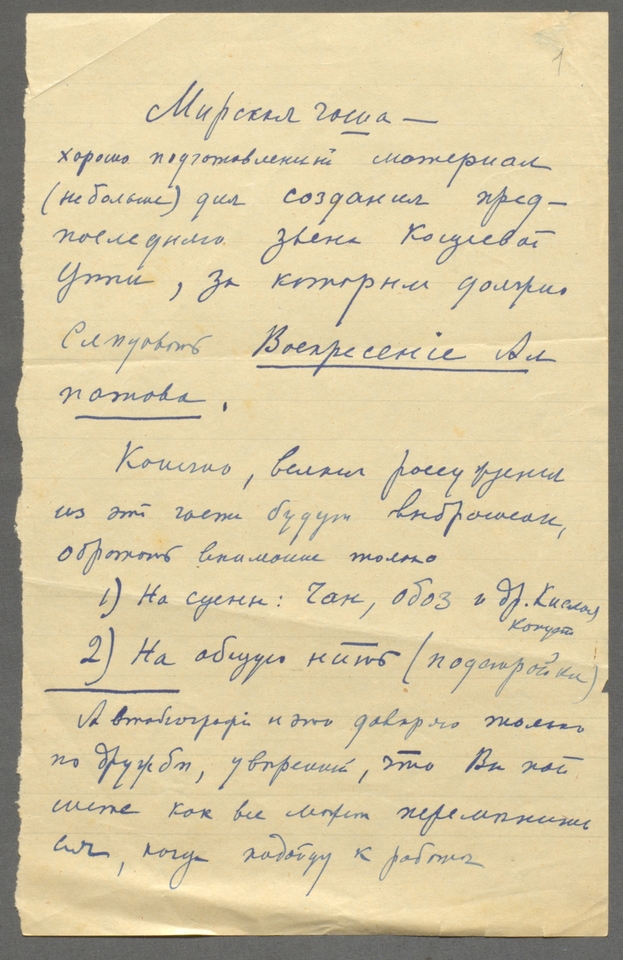 1
Мирская чаша —
хорошо подготовленный материал
(не больше) для создания пред-
последняго звена Кощеевой
Цепи, за которым должно
Слѣдовать Воскресенiе Ал
патова.
Конечно, всякия рассуждения
из этой части будут выброшены,
обратить внимание только
1) На сцены: Чан, обоз и др. Кислая
капуста
2) На общую нить (подстройки)
Автобиографiи и это доверяю только
по дружбѣ, уверенный, что Вы пой
мете как все может перемѣнить
ся, когда подойду к работѣ